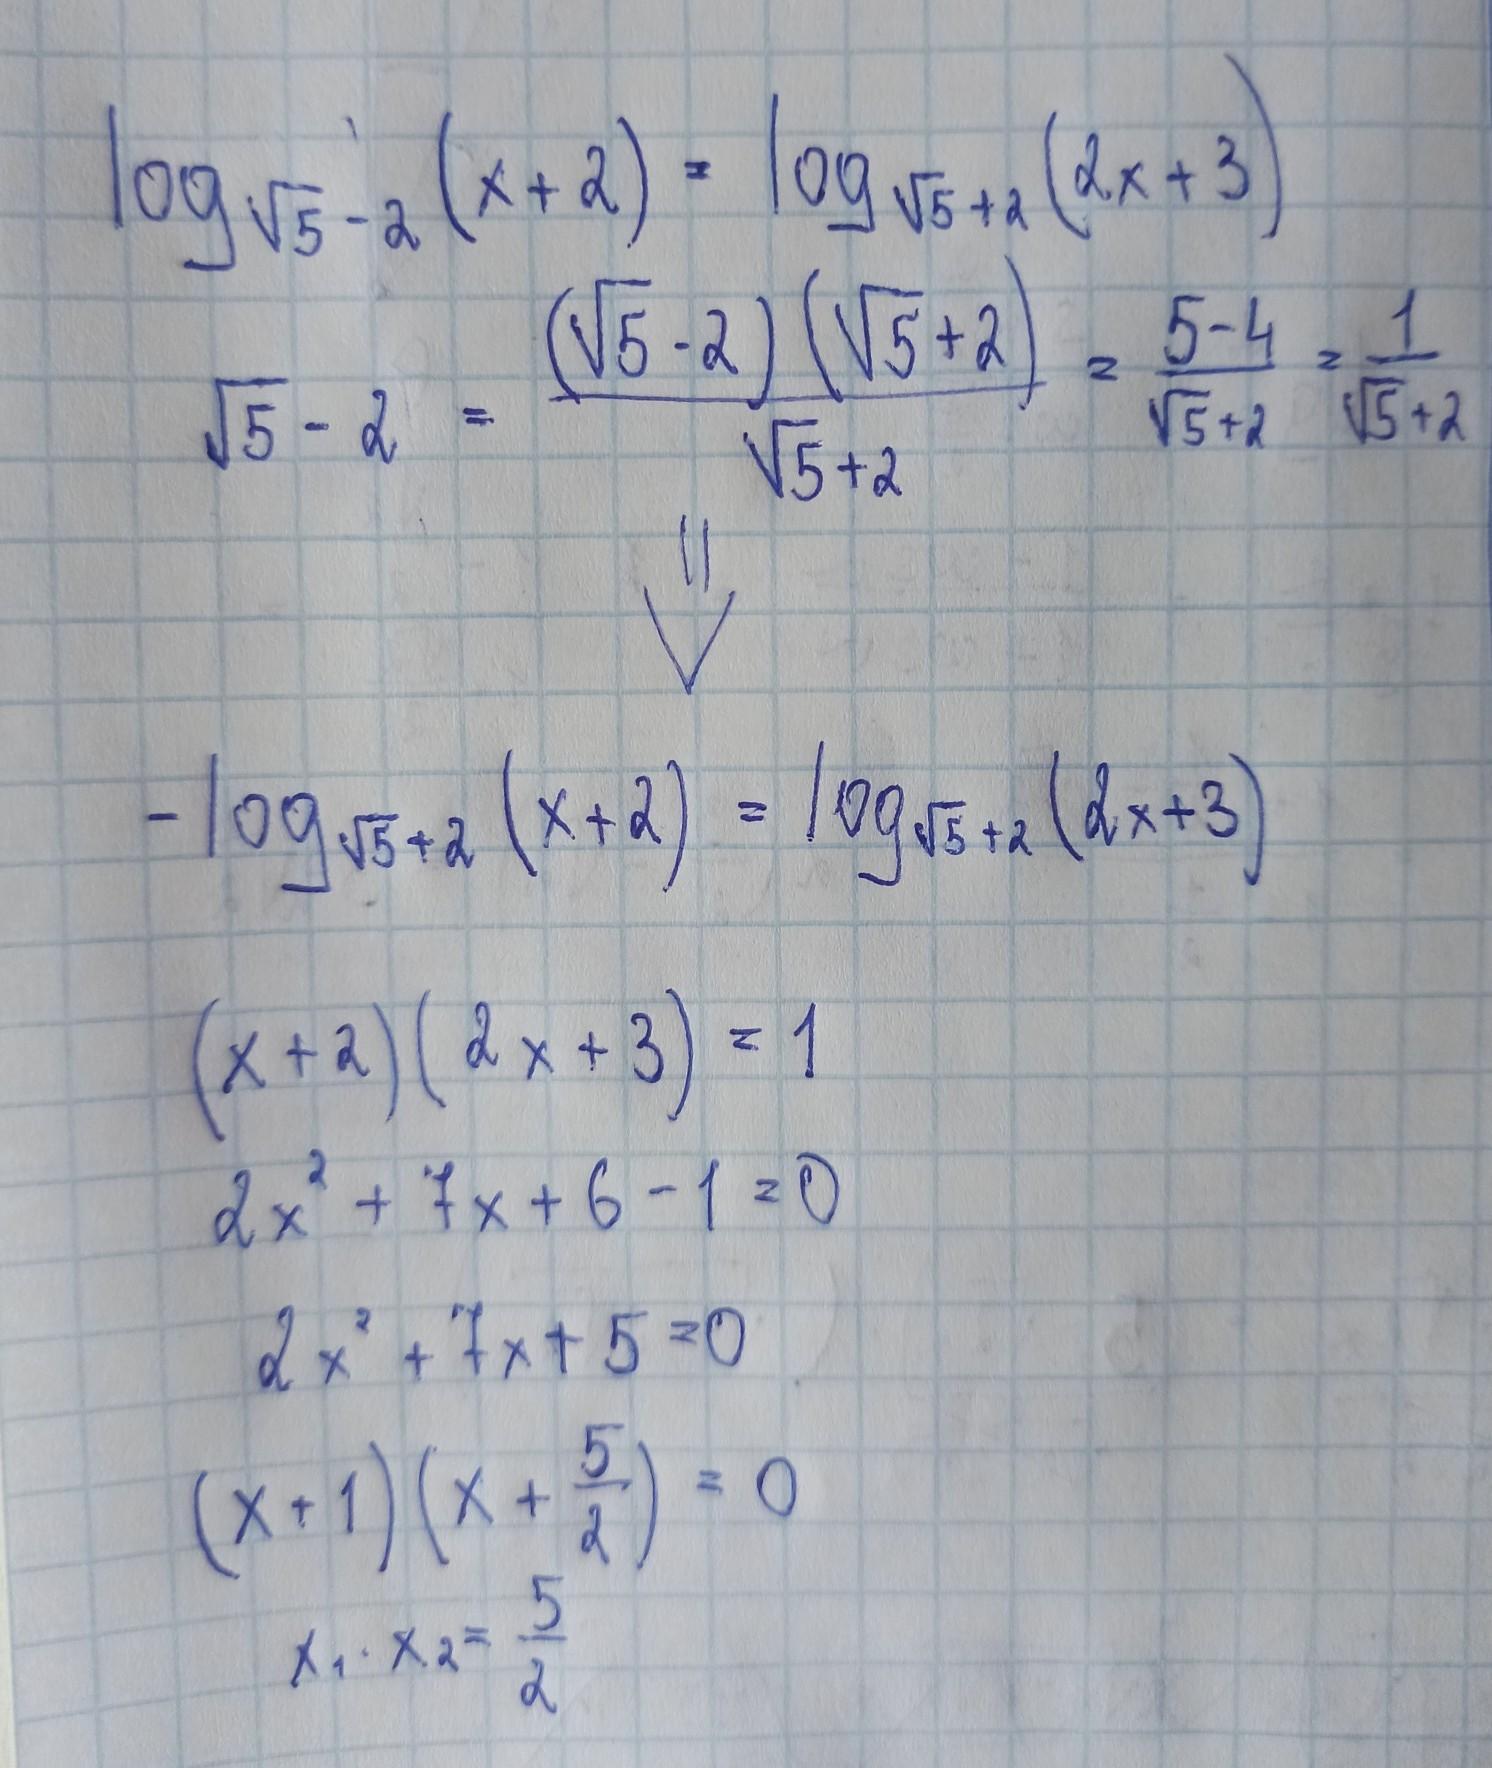 log_{√5-2}(x+2) = log_{√5+2}(2x+3)
√5-2 = ((√5-2)(√5+2))/(√5+2) = (5-4)/(√5+2) = 1/(√5+2)
⇓
-log_{√5+2}(x+2) = log_{√5+2}(2x+3)
(x+2)(2x+3) = 1
2x²+7x+6-1=0
2x²+7x+5=0
(x+1)(x+5/2) = 0
x₁·x₂=5/2